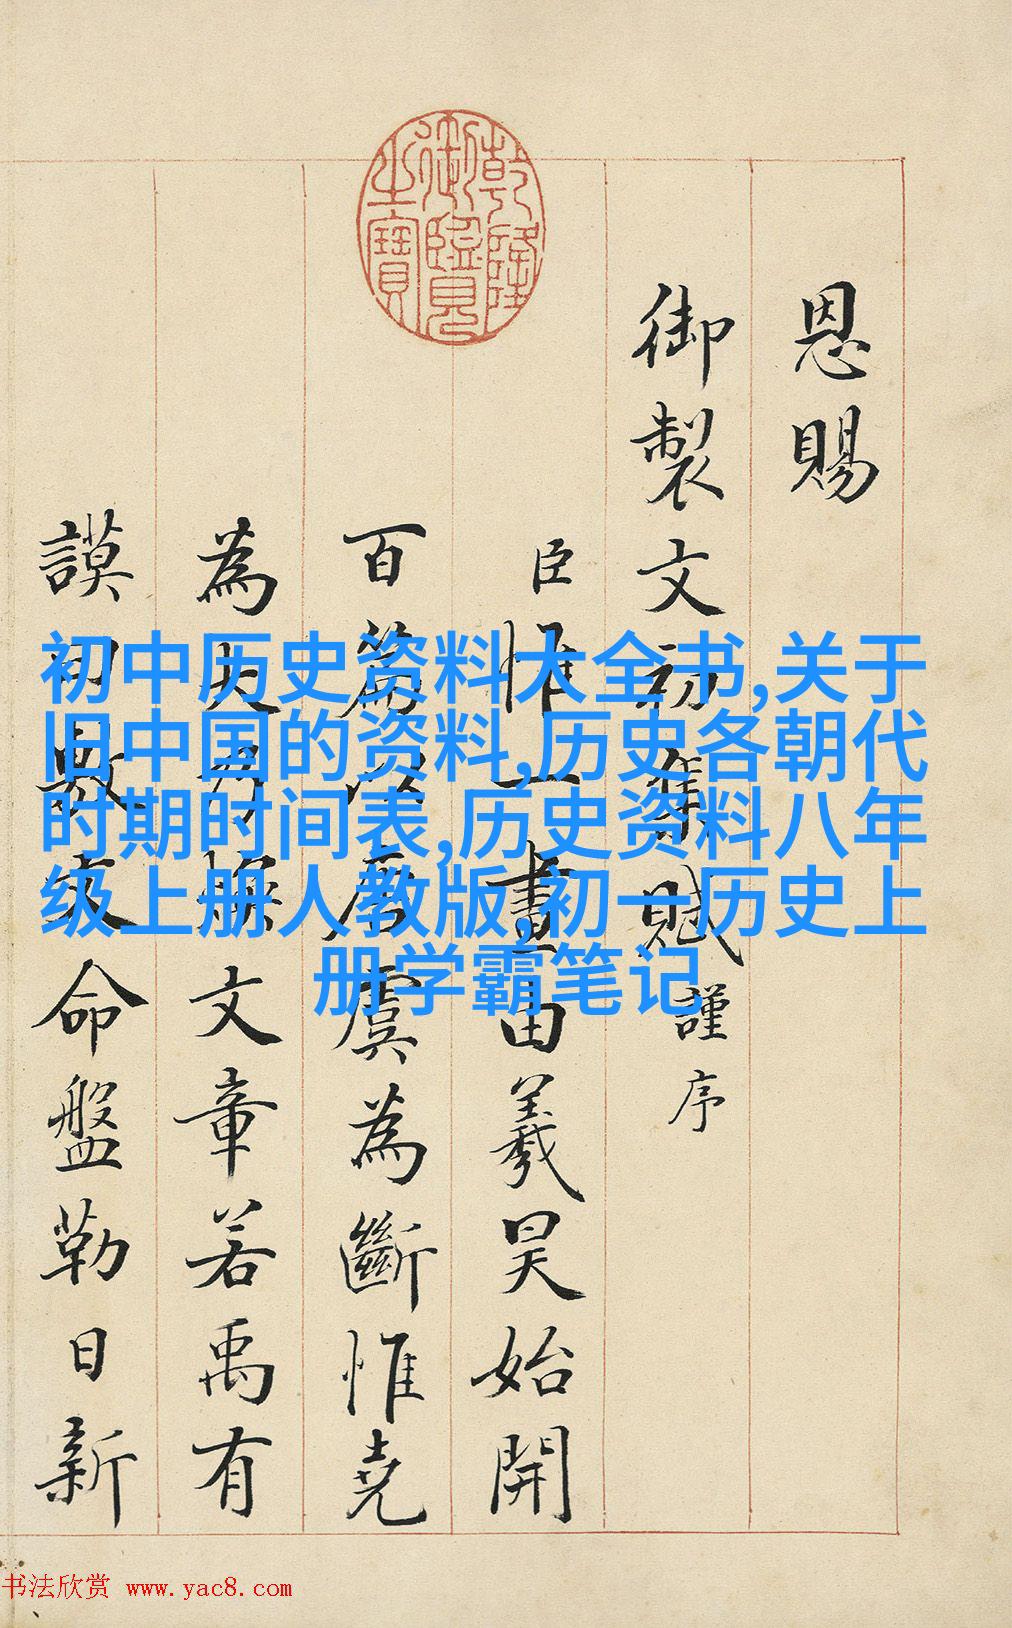 乾隆御覽之寶
恩賜
御製文初集賦謹序
臣惟一畫由羲昊始開
百篇以唐虞為斷惟堯
為大乃煥文章若禹有
謨曰敷文命盤勒日新
初中历史资料大全书,关于
旧中国的资料,历史各朝代
时期时间表,历史资料八年
级上册人教版,初一历史上
册学霸笔记
书法欣赏 www.yac8.com